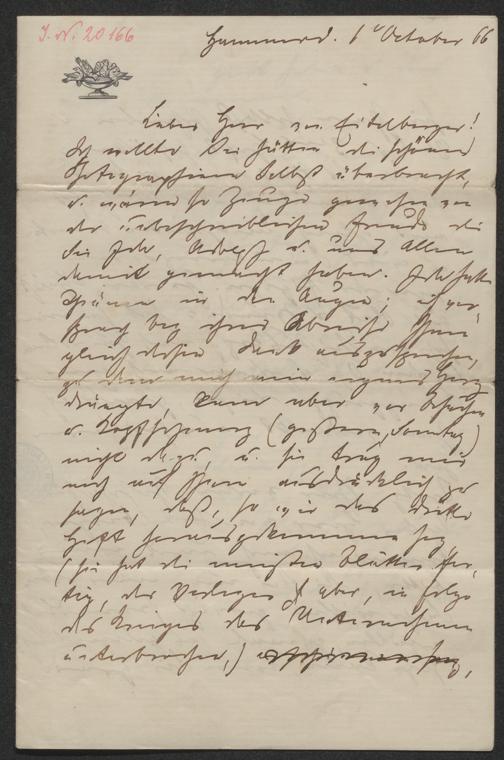 I. N. 20166
1t October 66
Lieber Herr von Eitelberger!
Ich wollte Sie hätten die schönen
Photographien selbst überbracht,
u. wären so Zeuge gewesen von
der unbeschreiblichen Freude die
Sie Ida, Adolf u. uns Allen
damit gemacht haben. Ida hatte
Thränen in den Augen; ich ver-
sprach bey ihrer Abreise Ihnen
gleich dafür Dank auszusprechen,
zu dem mich mein eigenes Herz
drängte, kam aber vor
u. (gestern, Sonntag)
nicht dazu, u. sie trug mir
noch auf Ihnen ausdrücklich zu
sagen, daß, so wie das dritte
Heft herausgekommen sey
(sie hat die meisten Blätter fer-
tig, der Verleger aber, in Folge
des Krieges das Unternehmen
unterbrochen,)